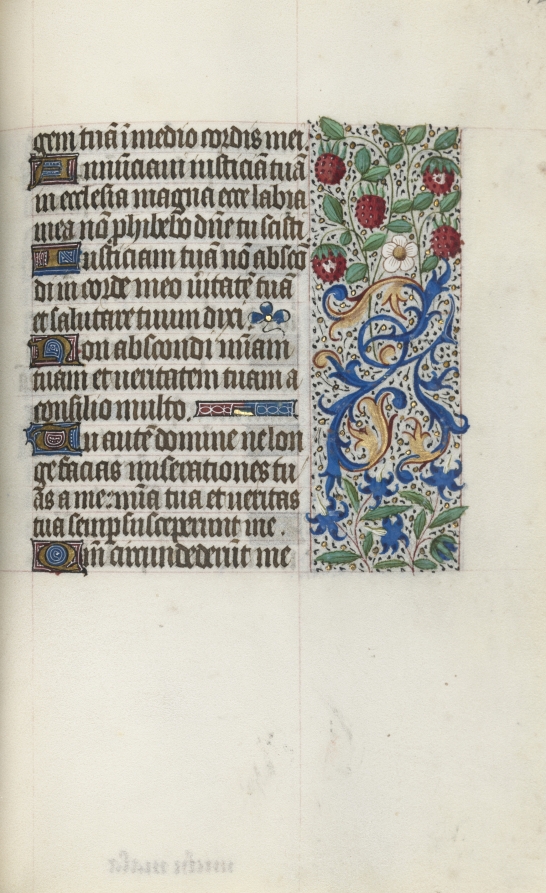 gem tuã ĩ medio cordis mei
Annũciaui iusticiã tuã
in ecclesia magna ecce labia
mea nõ phibebo dñe tu scisti
Iusticiam tuã nõ abscõ
di in corde meo ũitatẽ tuã
et salutare tuum dixi
Non abscondi mĩam
tuam et ueritatem tuam a
consilio multo.
Tu autẽ domine ne lon
ge facias miserationes tu
ãs a me: mĩa tua et ueritas
tua semp susceperunt me
Qm̃ circundederũt me